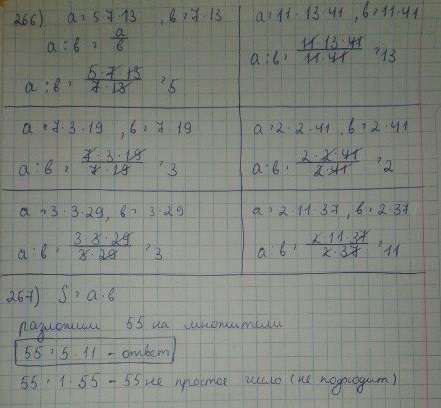 266) a = 5·7·13, b = 7·13
a : b = a/b
a : b = 5·7·13/7·13 = 5
a = 11·13·41, b = 11·41
a : b = 11·13·41/11·41 = 13
a = 7·3·19, b = 7·19
a : b = 7·3·19/7·19 = 3
a = 2·2·41, b = 2·41
a : b = 2·2·41/2·41 = 2
a = 3·3·29, b = 3·29
a : b = 3·3·29/3·29 = 3
a = 2·11·37, b = 2·37
a : b = 2·11·37/2·37 = 11
267) S = a·b
разложим 55 на множители
55 = 5·11 - ответ
55 = 1·55 - 55 не простое число (не подходит)